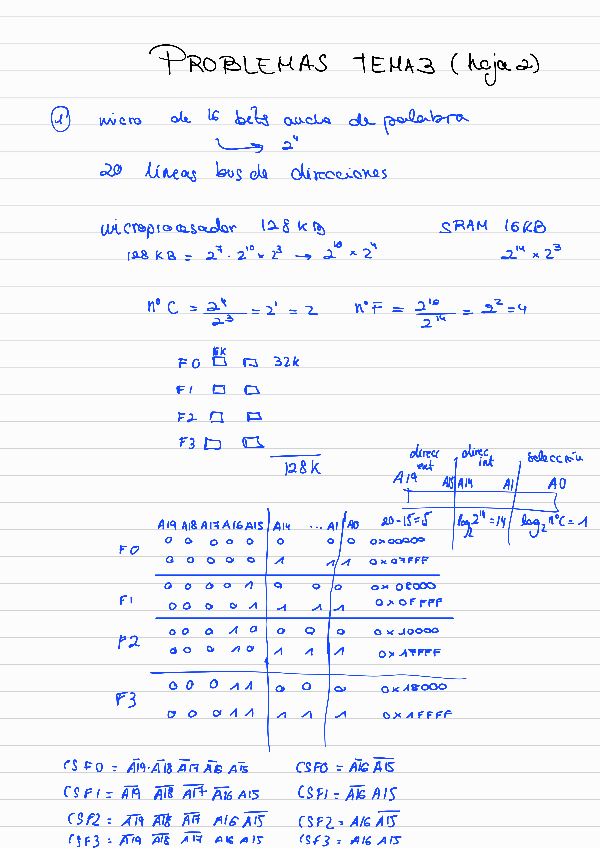 PROBLEMAS TEMA3 (hoja 2)
1) micro de 16 bits ancho de palabra
2⁴
20 líneas bus de direcciones
microprocesador 128 KB SRAM 16KB
128 KB = 2⁷ · 2¹⁰ × 2³ → 2¹⁶ × 2⁴ 2¹⁴ × 2³
nº C = 2⁴/2³ = 2¹ = 2 nº F = 2¹⁶/2¹⁴ = 2² = 4
F0 32K
F1
F2
F3
128K
direcc ext direcc int selección
A19 A15 A14 A1 A0
20-15=5 log₂ 2¹⁴ = 14 log₂ nºC = 1
A19 A18 A17 A16 A15 A14 ... A1 A0
F0 0 0 0 0 0 0 0 0 0x00000
0 0 0 0 0 1 1 1 0x07FFF
F1 0 0 0 0 1 0 0 0 0x08000
0 0 0 0 1 1 1 1 0x0FFFF
F2 0 0 0 1 0 0 0 0 0x10000
0 0 0 1 0 1 1 1 0x17FFF
F3 0 0 0 1 1 0 0 0 0x18000
0 0 0 1 1 1 1 1 0x1FFFF
CSF0 = A̅1̅9̅·A̅1̅8̅ A̅1̅7̅ A̅1̅6̅ A̅1̅5̅ CSF0 = A̅1̅6̅ A̅1̅5̅
CSF1 = A̅1̅9̅ A̅1̅8̅ A̅1̅7̅ A̅1̅6̅ A15 CSF1 = A̅1̅6̅ A15
CSF2 = A̅1̅9̅ A̅1̅8̅ A̅1̅7̅ A16 A̅1̅5̅ CSF2 = A16 A̅1̅5̅
CSF3 = A̅1̅9̅ A̅1̅8̅ A̅1̅7̅ A16 A15 CSF3 = A16 A15